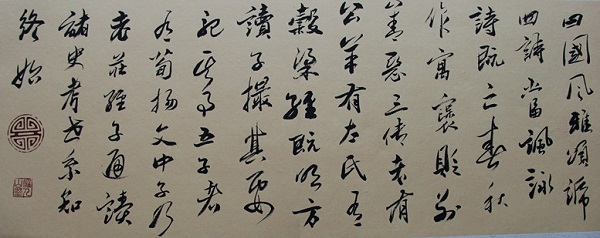 曰國風雅頌號
四詩當諷詠
詩既亡春秋
作寓褒貶別
善惡三傳者有
公羊有左氏有
穀梁經既明方
讀子撮其要
記其事五子者
有荀揚文中子及
老莊經子通讀
諸史考世系知
終始